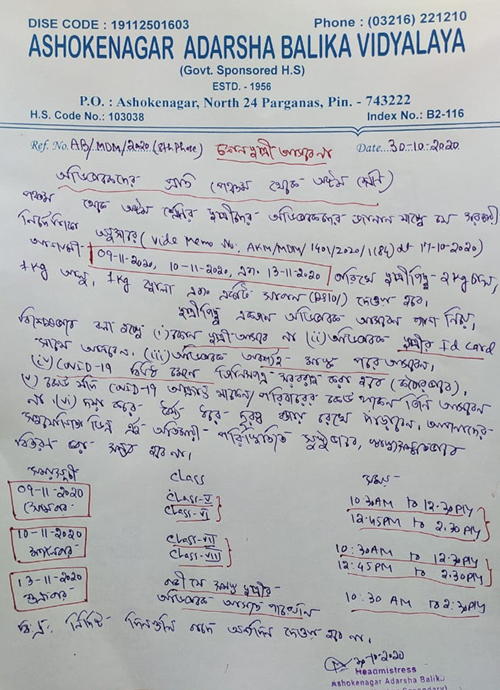 DISE CODE : 19112501603 Phone : (03216) 221210
ASHOKENAGAR ADARSHA BALIKA VIDYALAYA
(Govt. Sponsored H.S)
ESTD. - 1956
P.O. : Ashokenagar, North 24 Parganas, Pin. - 743222
H.S. Code No.: 103038 Index No.: B2-116
Ref. No. AB/MDM/2020 (8th Phase) কোন ছাত্রী আসবে না Date... 30-10-2020
অভিভাবকদের প্রতি (পঞ্চম থেকে অষ্টম শ্রেণী)
পঞ্চম থেকে অষ্টম শ্রেণির ছাত্রীদের অভিভাবকদের জানান যাচ্ছে যে সরকারী
অনুসারে (Vide Memo No. AKM/MDM/1401/2020/1(84) dt 17-10-2020)
আগামী 09-11-2020, 10-11-2020, এবং 13-11-2020 তারিখে ছাত্রীপিছু 2 kg চাল,
1 kg আলু, 1 kg ছোলা এবং একটি সাবান দেওয়া হবে।
ছাত্রীপিছু একজন অভিভাবক আসবেন
বিশেষভাবে বলা হচ্ছে (i) কোন ছাত্রী আসবে না (ii) অভিভাবক ছাত্রীর Id Card
আসবেন. (iii) অভিভাবক অবশ্যই মাস্ক পরে আসবেন.
(iv) COVID-19 বিধি মেনে জিনিসপত্র সরবরাহ করা হবে
(v) কেউ যদি COVID-19 পরিবারের কেউ থাকেন তিনি আসবেন
না (vi) দয়া করে ধৈর্য ধরে দূরত্ব বজায় রেখে দাঁড়াবেন. আপনাদের
সহযোগিতা ভিন্ন এই পরিস্থিতিতে সুষ্ঠুভাবে,
বিতরণ করা সম্ভব হবে না।
সময়সূচী class সময়
09-11-2020 class-V 10:30AM to 12:30PM
সোমবার class-VI 12:45PM to 2:30PM
10-11-2020 class-VII 10:30AM to 12:30PM
মঙ্গলবার class-VIII 12:45 PM to 2:30PM
13-11-2020 ছাত্রীর 10:30 AM to 2:30PM
শুক্রবার অভিভাবক আসতে পারেননি
বি.দ্র. নির্দিষ্ট দিনগুলি বাদে অন্যদিন দেওয়া হবে না।
30-10-2020
Headmistress
Ashokenagar Adarsha Balika